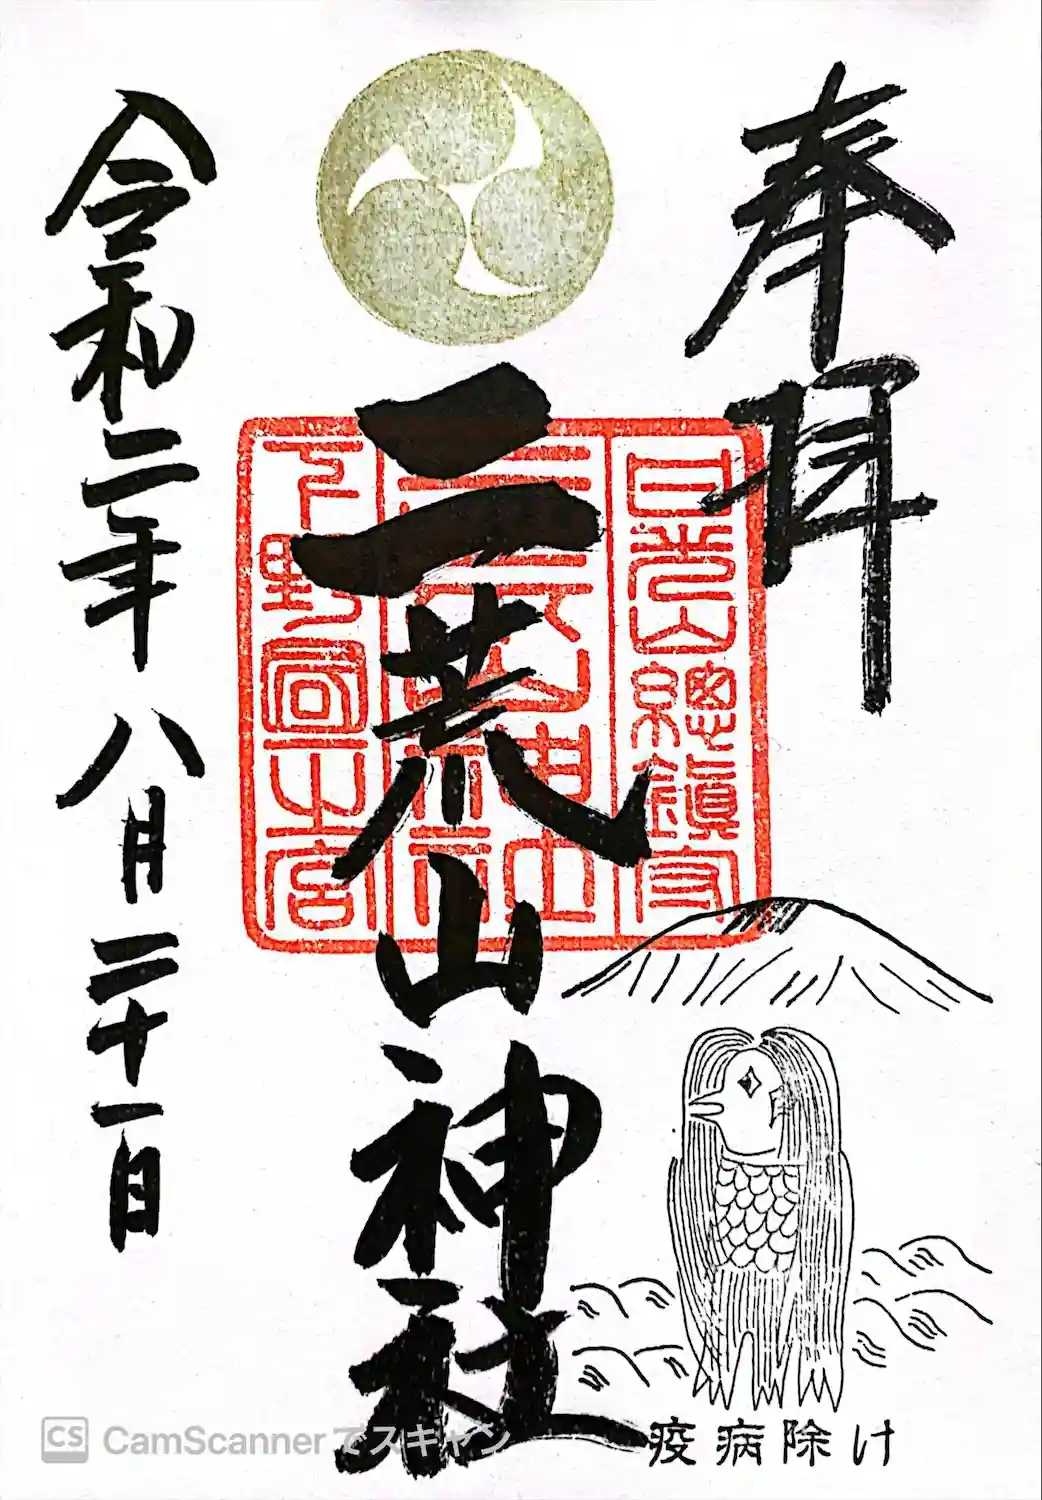 奉拝
日光山總鎮守
二荒山神社
下野國一之宮
二荒山神社
令和二年八月二十一日
疫病除け
CS CamScannerでスキャン